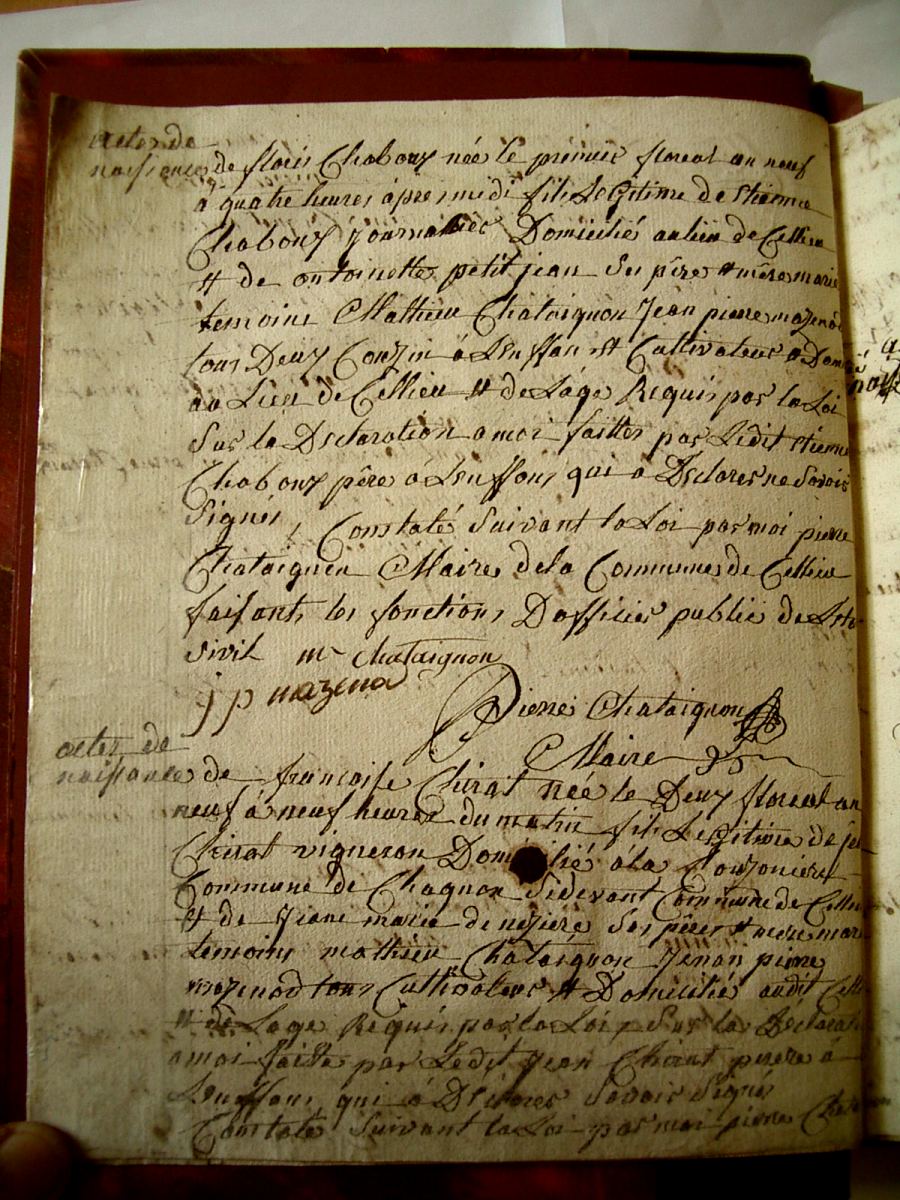 actes de
naissance de floris Chabouy née le premier floreal an neuf
a quatre heures apres midi fils Legitime de Etienne
Chabouy journallier Domiciliés au lieu de Cellieu
et de antoinette petit jean Ses père et mère marie
temoins Mathieu Chataignon Jean pierre mazenod
tous Deux Couzin à Lenffan et Cultivateur
au Lieu de Cellieu et de Láge Requis par la Loi
Sur la Declaration a moi faitte par Ledit Etienne
Chabouy père à Lenffons qui à Declares ne Savoir
Signés, Constaté Suivant la Loi par moi pierre
Chataignon Maire de la Commune de Cellieu
faisants les fonctions Dofficier public de
Sivil m chataignon
j p mazena
Pierre Chataignon
Maire
actes de
naissance de francoise Chirat née le Deux floreal an
neuf à neuf heures du matin fils Legitime de
Chirat vigneron à la
Commune de Chagnon Sidevant Commune de
et de Jeane marie Ses père et mere
temoins mathieu Chataignon Jenan pierre
mazenod tous Cultivateur et Domiciliés audit
et de Lage Requis par la Loi Sur la
a moi faitte par Ledit Jean Chirat perre à
Lenffons qui à Declares Savoir Signés
Constaté Suivant la Loi par moi pierre